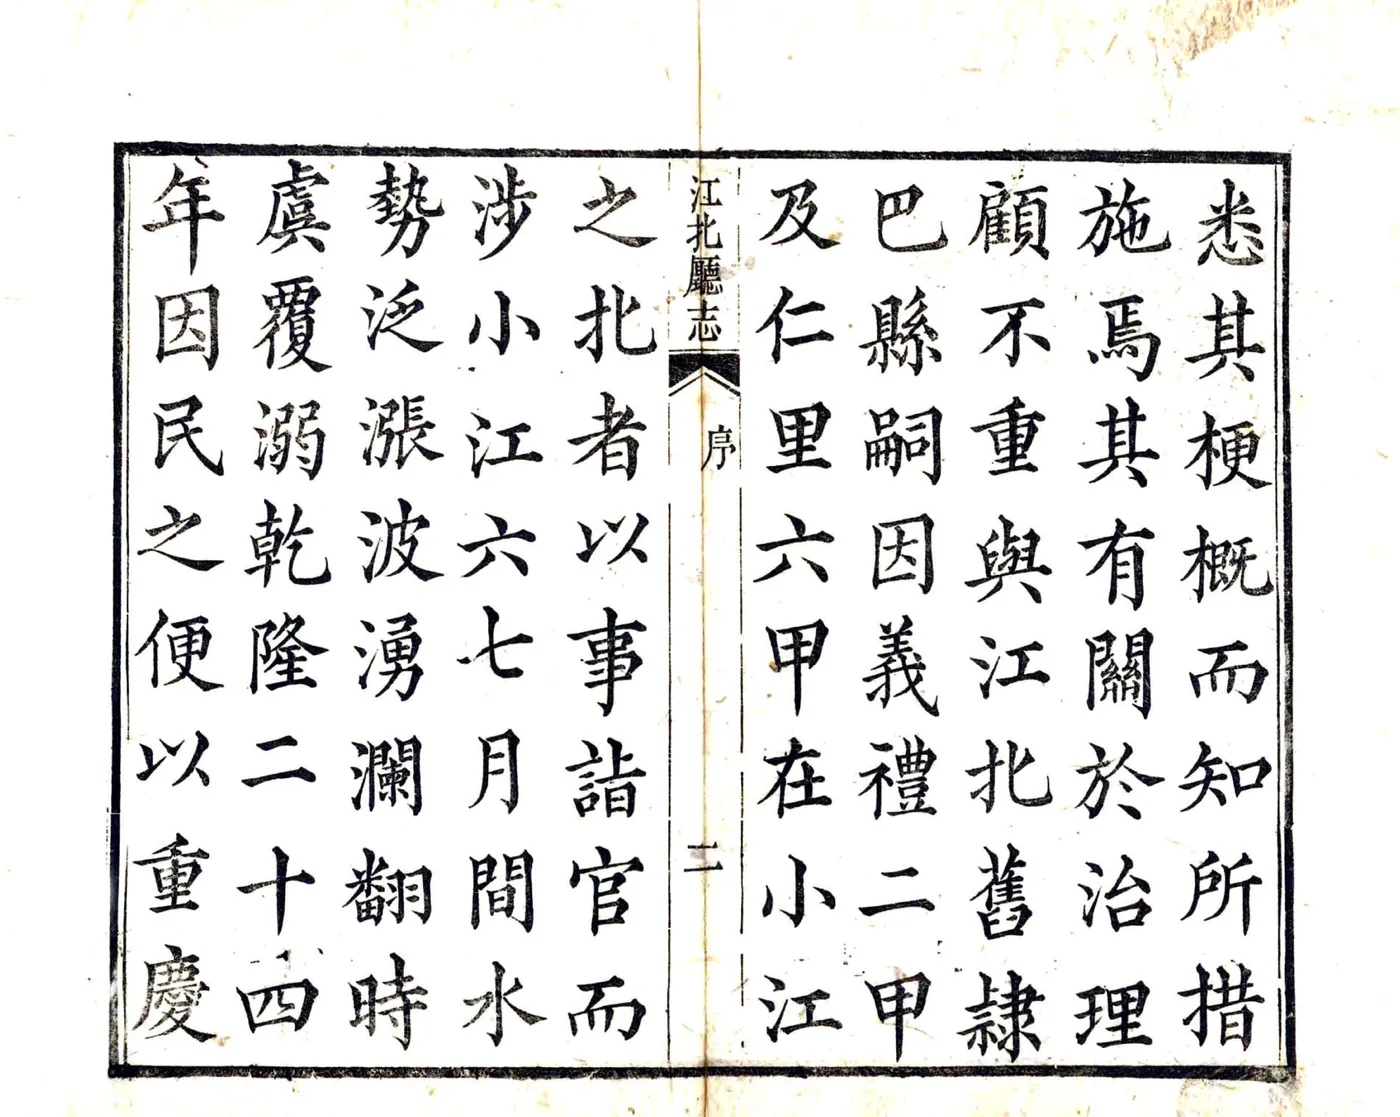 悉其梗概而知所措
施焉其有關於治理
顧不重與江北舊隷
巴縣嗣因義禮二甲
及仁里六甲在小江
江北廳志
序
二
之北者以事詣官而
涉小江六七月間水
勢泛漲波湧瀾翻時
虞覆溺乾隆二十四
年因民之便以重慶